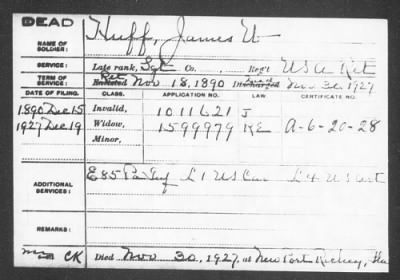 DEAD
NAME OF SOLDIER: Huff, James W
SERVICE: Late rank, Sgt Co. , Reg't USA Ret
TERM OF SERVICE: Enlisted Ret Nov 18, 1890 Discharged Nov. 30, 1927
DATE OF FILING. CLASS. APPLICATION NO. LAW CERTIFICATE NO.
1890 Dec 15 Invalid, 1011621 J
1927 Dec 19 Widow, 1599979 RE A-6-20-28
Minor,
ADDITIONAL SERVICES: E 85 Pa Inf L 1 US Cav L 4 US Art
REMARKS:
CK Died Nov 30, 1927, at New Port Richey, Fla